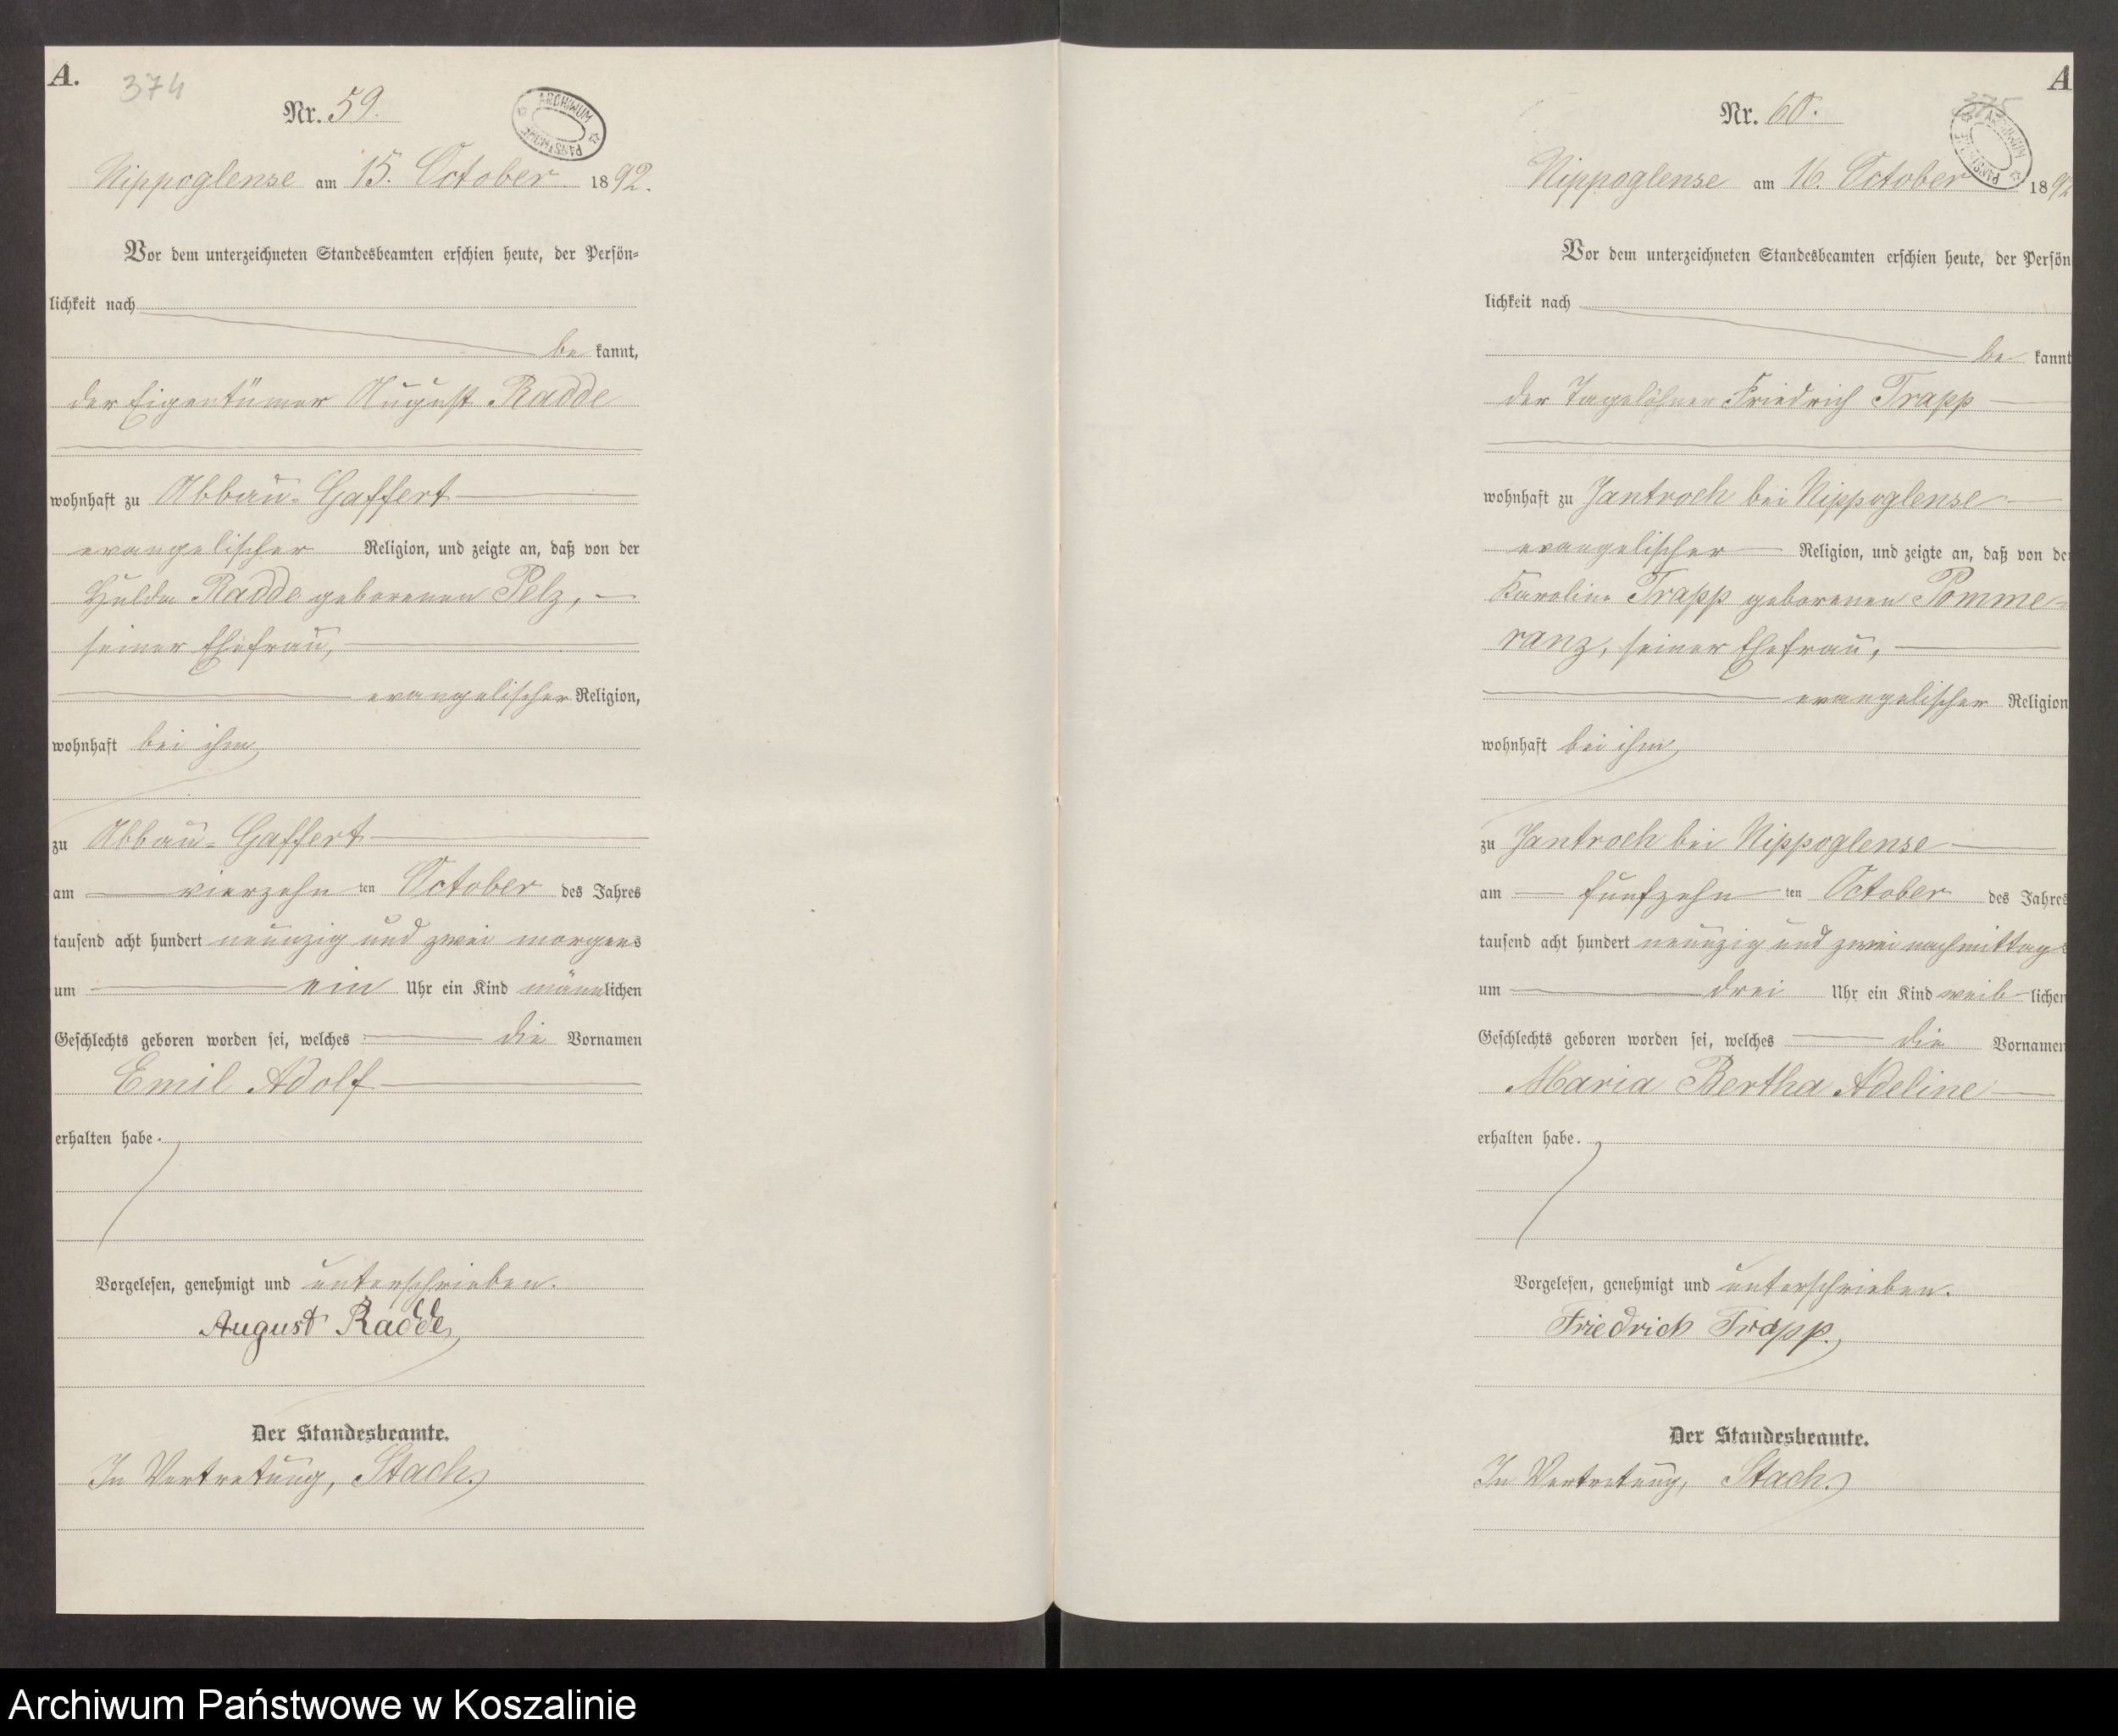 A.
374
Nr. 59.
ARCHIWUM PAŃSTWOWE
Nippoglense am 15. October 1892.
Vor dem unterzeichneten Standesbeamten erschien heute, der Persön-
lichkeit nach
be kannt,
der Eigentümer August Radde
wohnhaft zu Abbau-Gaffert
evangelischer Religion, und zeigte an, daß von der
Hulda Radde geborenen Pelz,
seiner Ehefrau,
evangelischer Religion,
wohnhaft bei ihm,
zu Abbau-Gaffert
am vierzehn ten October des Jahres
tausend acht hundert neunzig und zwei morgens
um ein Uhr ein Kind männlichen
Geschlechts geboren worden sei, welches die Vornamen
Emil Adolf
erhalten habe.
Vorgelesen, genehmigt und unterschrieben.
August Radde,
Der Standesbeamte.
In Vertretung, Stach.
A
375
Nr. 60.
ARCHIWUM PAŃSTWOWE
Nippoglense am 16. October 1892
Vor dem unterzeichneten Standesbeamten erschien heute, der Persön
lichkeit nach
be kannt
der Tagelöhner Friedrich Trapp
wohnhaft zu Jantroch bei Nippoglense
evangelischer Religion, und zeigte an, daß von de
Karoline Trapp geborenen Pomme-
ranz, seiner Ehefrau,
evangelischer Religion
wohnhaft bei ihm,
zu Jantroch bei Nippoglense
am funfzehn ten October des Jahres
tausend acht hundert neunzig und zwei nachmittags
um drei Uhr ein Kind weib lichen
Geschlechts geboren worden sei, welches die Vornamen
Maria Bertha Adeline
erhalten habe.
Vorgelesen, genehmigt und unterschrieben.
Friedrich Trapp.
Der Standesbeamte.
In Vertretung, Stach.
Archiwum Państwowe w Koszalinie